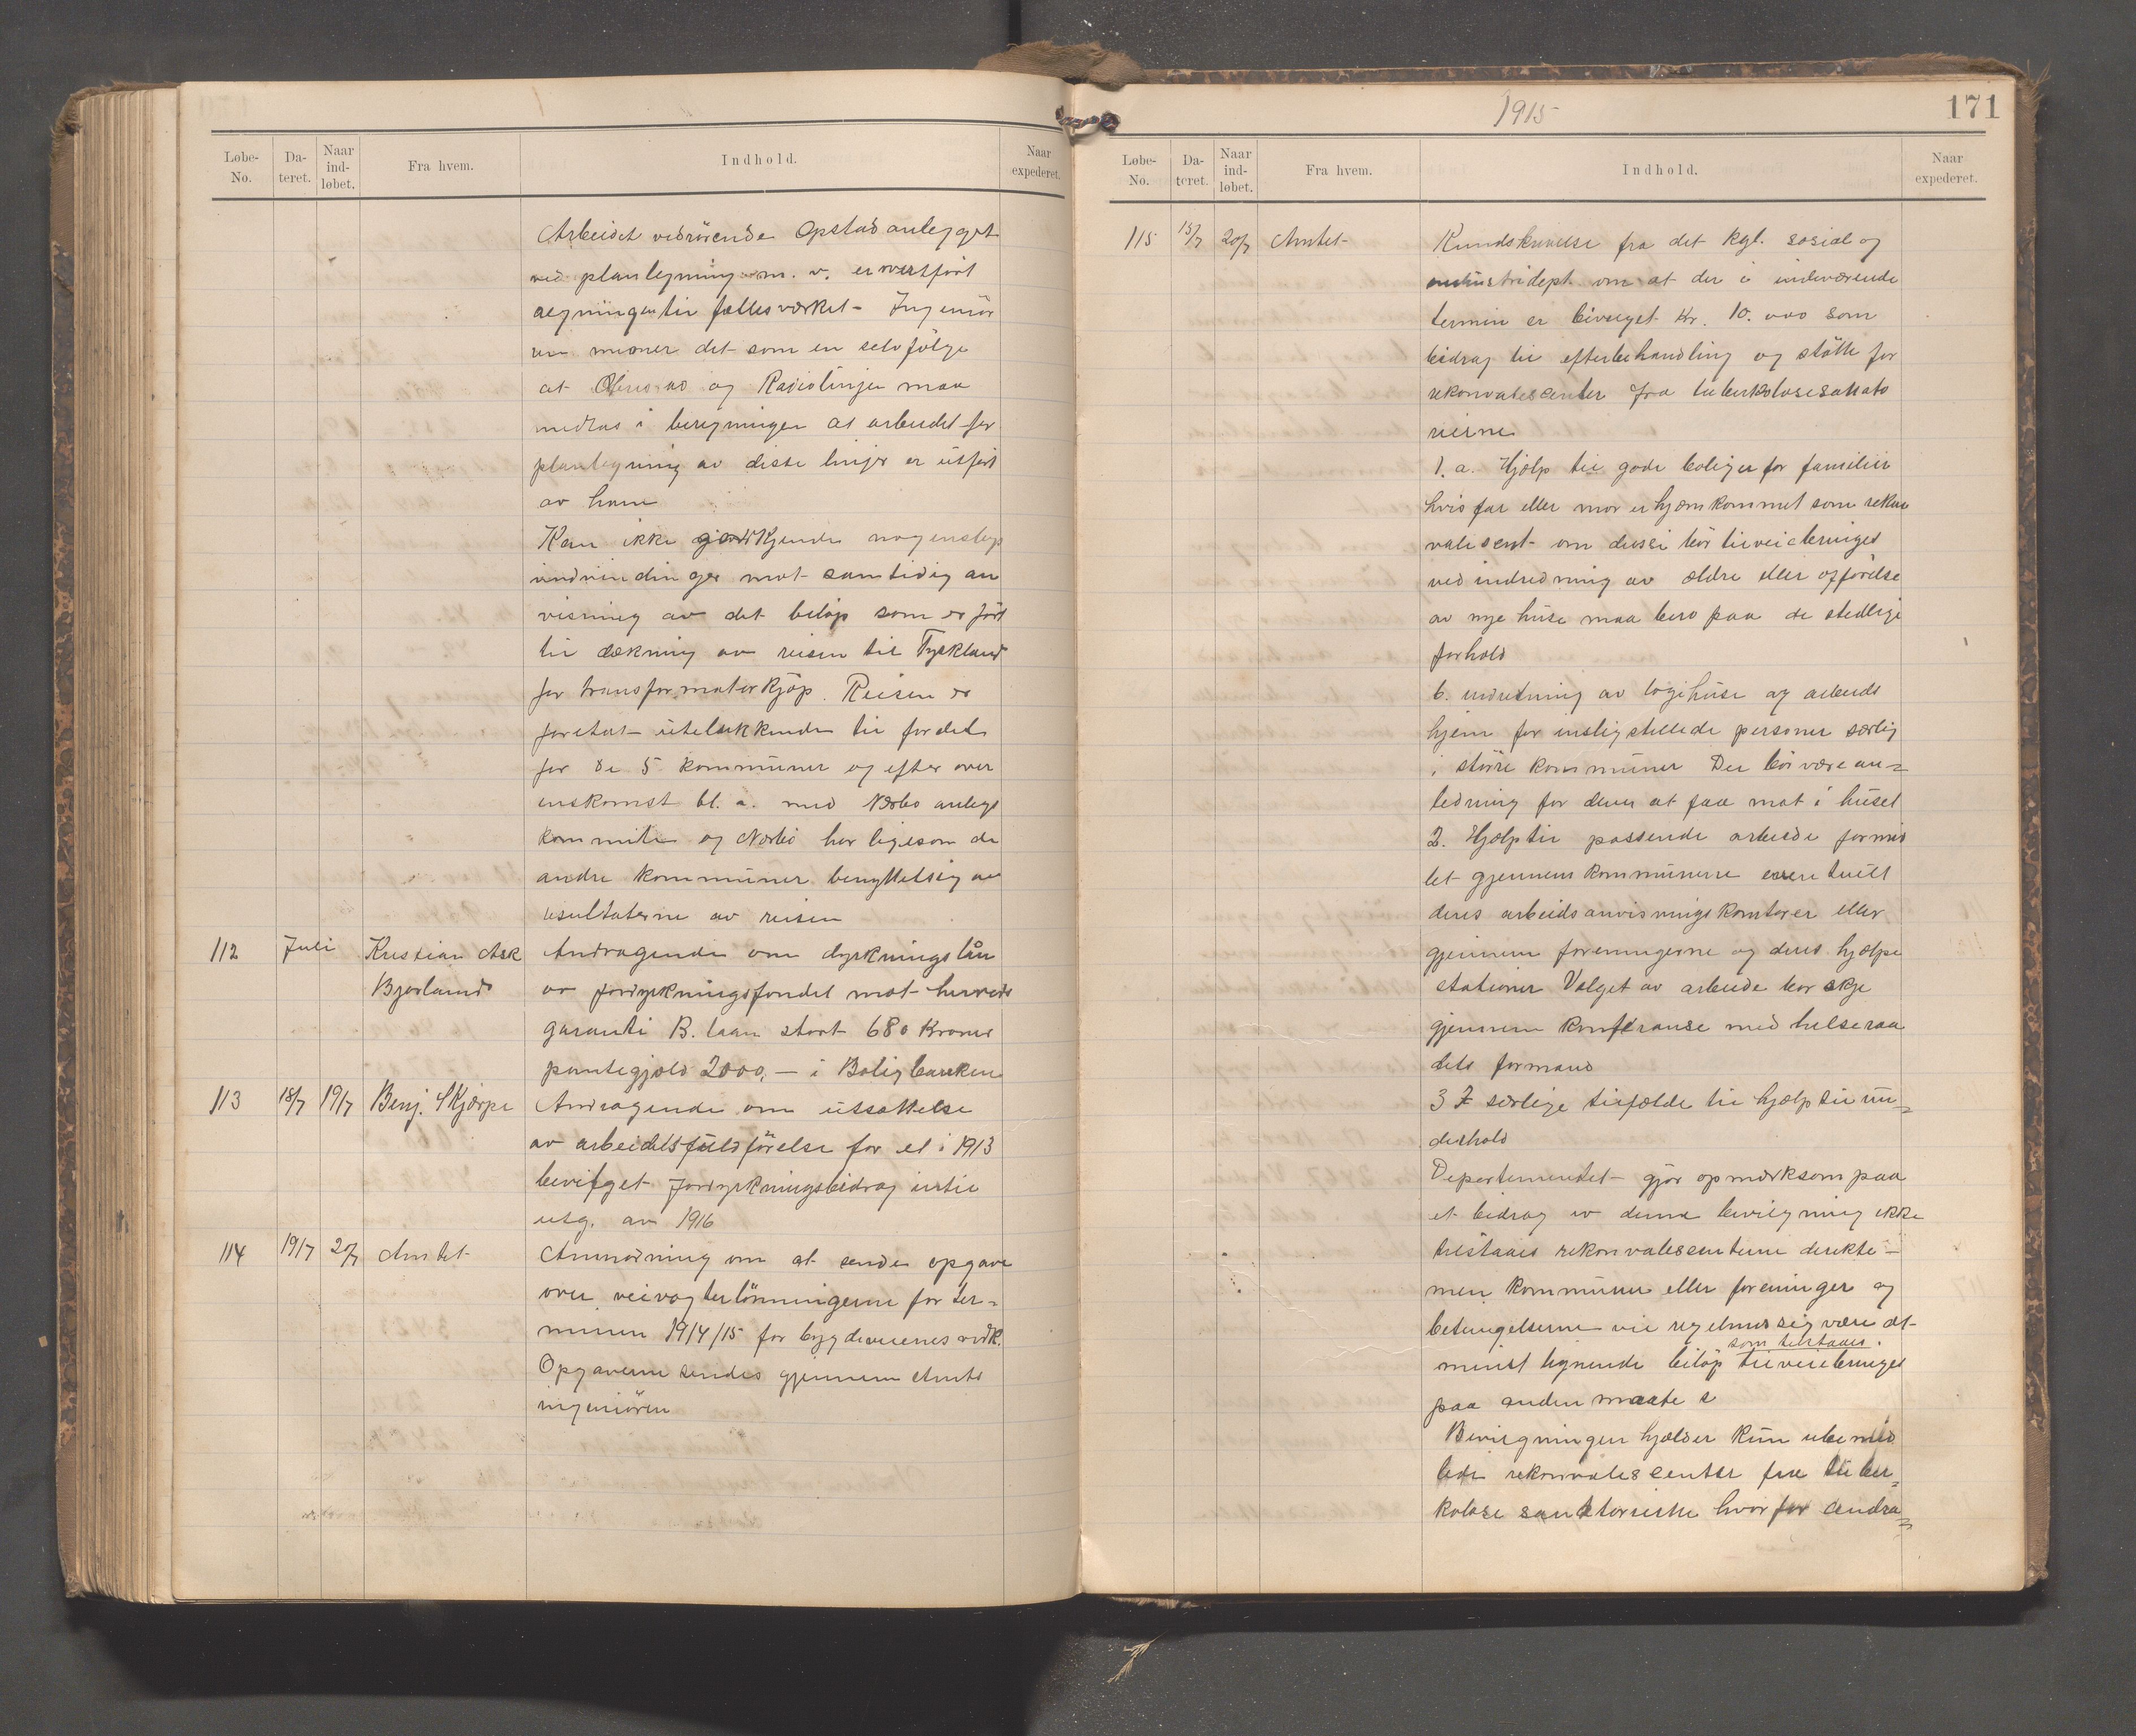 Løbe-No. Da-teret. Naar ind-løbet. Fra hvem. Indhold. Naar expederet.
Arbeidet vedrørende Opstadanlegget
ved planlegning m. v. er
regningen til fællesværket - Ingeniør
en mener det som en selvfølge
at og Radiolinjen maa
medtas i beregningen at arbeidet for
planlegning av disse linjer er utført
av ham
Kan ikke godkjende nogenslags
indvendinger mot samtidig an
visning av det beløp som er ført
til dækning av reisen til Tyskland
for transformatorkjøp. Reisen er
foretat utelukkende til fordel
for de 5 kommuner og efter over
enskomst bl. a. med Nærbø anlegs
kommite og Nærbø har ligesom de
andre kommuner benyttet sig av
resultaterne av reisen
112 Juli Kristian Ask Andragende om dyrkningslån
Bjorland av jorddyrkningsfondet mot herreds
garanti B. laan stort 680 Kroner
pantegjæld 2000,— i Boligbanken
113 18/7 19/7 Benj. Skjærpe Andragende om utsættelse
av arbeidets fuldførelse for et i 1913
bevilget Jorddyrkningsbidrag indtil
utg. av 1916
114 19/7 20/7 Amtet Anmodning om at sende opgave
over veivogterlønningerne for ter-
minen 1914/15 for bygdeveienes vedk.
Opgaverne sendes gjennem Amts
ingeniøren
1915
171
Løbe-No. Da-teret. Naar ind-løbet. Fra hvem. Indhold. Naar expederet.
115 15/7 20/7 Amtet Rundskrivelse fra det kgl. social og
industridept. om at der i indeværende
termin er bevilget Kr. 10.000 som
bidrag til efterbehandling og støtte for
rekonvalescenter fra tuberkulosesanato
rierne
1. a. Hjælp til gode boliger for familier
hvis far eller mor er hjemkommet som rekon
valescent om disse bør tilveiebringes
ved indredning av ældre eller opførelse
av nye huse maa bero paa de stedlige
forhold
b. indretning av logihuse og arbeids
hjem for enslig stillede personer særlig
i større kommuner Der bør være an-
ledning for dem at faa mat i huset
2. Hjælp til passende arbeide formid
let gjennem kommunerne eventuelt
deres arbeidsanvisningskontorer eller
gjennem foreningerne og deres hjælpe
stationer Valget av arbeide bør skje
gjennem konferanse med helseraa
dets formand
3 I særlige tilfælde til hjælp til un-
derhold
Departementet gjør opmerksom paa
at bidrag av denne bevilgning ikke
tilstaaes rekonvalescenterne direkte -
men kommuner eller foreninger og
betingelserne vil regelmessig være at
som tilstaaes.
minst lignende beløp tilveiebringes
paa anden maate
Bevilgningen gjælder kun ubemid
lede rekonvalescenter fra tuber-
kolose sanatorierne hvorfor andra-